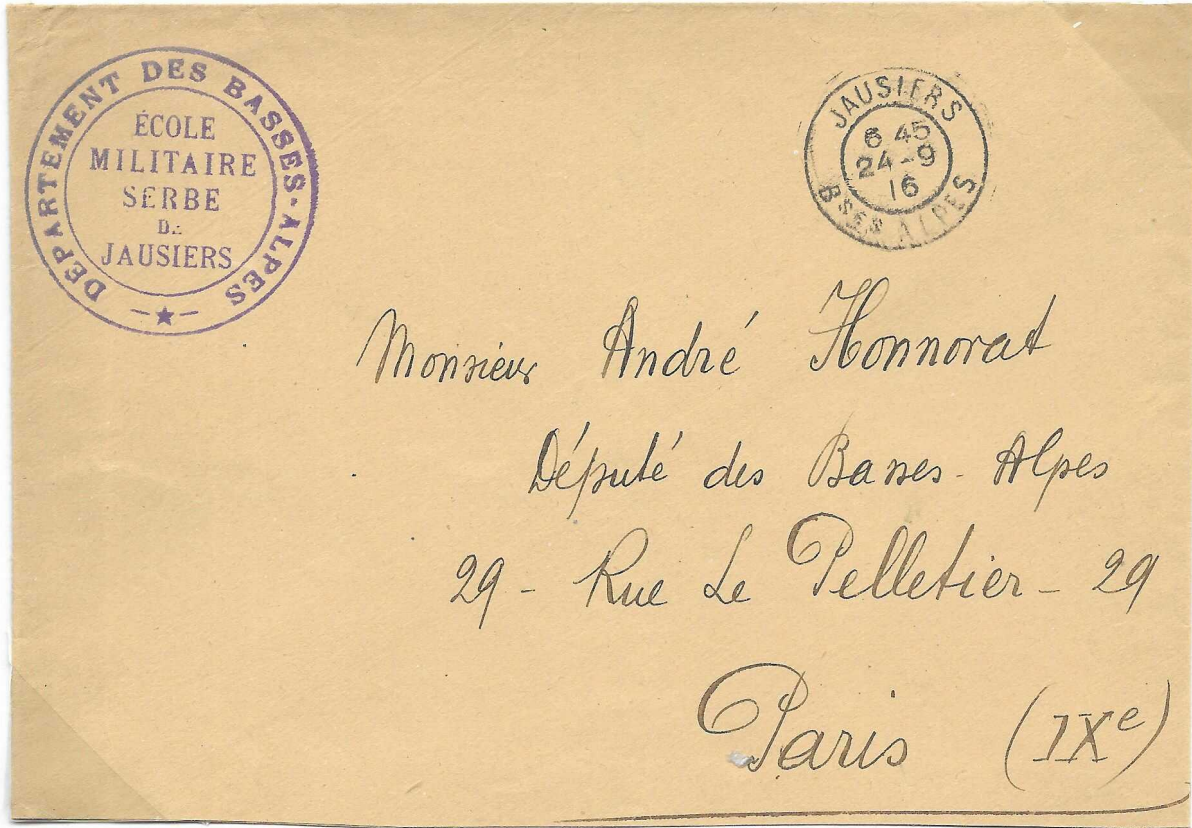 DEPARTEMENT DES BASSES-ALPES
ÉCOLE
MILITAIRE
SERBE
DE
JAUSIERS
JAUSIERS
6 45
24-9
16
Bses ALPES
Monsieur André Honnorat
Député des Basses-Alpes
29 - Rue Le Pelletier - 29
Paris (IXe)